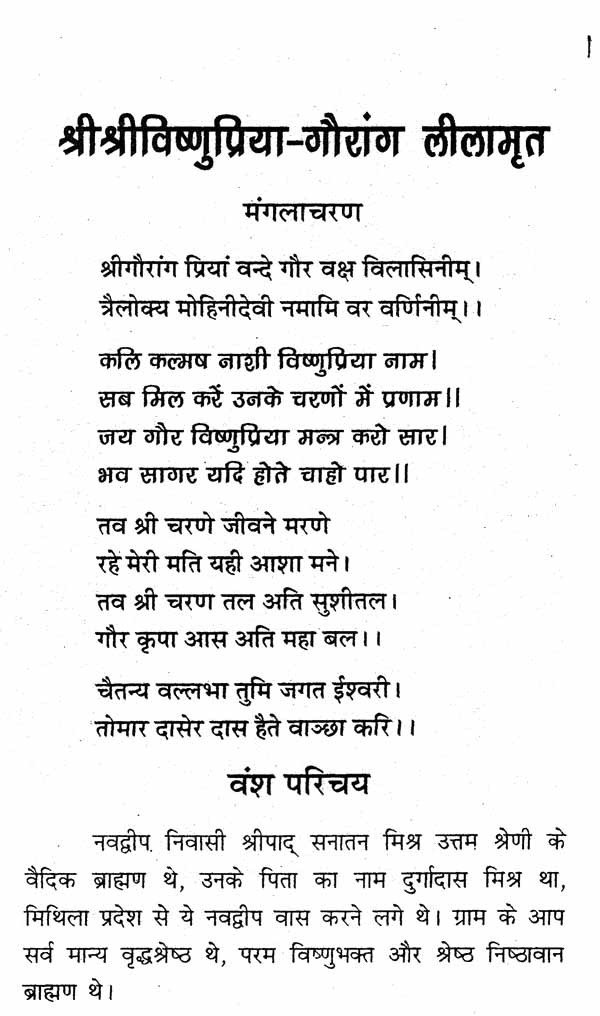 श्रीश्रीविष्णुप्रिया-गौरांग लीलामृत
मंगलाचरण
श्रीगौरांग प्रियां वन्दे गौर वक्ष विलासिनीम्।
त्रैलोक्य मोहिनीदेवी नमामि वर वर्णिनीम्।।
कलि कल्मष नाशी विष्णुप्रिया नाम।
सब मिल करें उनके चरणों में प्रणाम॥
जय गौर विष्णुप्रिया मन्त्र करो सार।
भव सागर यदि होते चाहो पार॥
तव श्री चरणे जीवने मरणे
रहे मेरी मति यही आशा मने।
तव श्री चरण तल अति सुशीतल।
गौर कृपा आस अति महा बल।।
चैतन्य वल्लभा तुमि जगत ईश्वरी।
तोमार दासेर दास हैते वाञ्छा करि।।
वंश परिचय
नवद्वीप निवासी श्रीपाद् सनातन मिश्र उत्तम श्रेणी के
वैदिक ब्राह्मण थे, उनके पिता का नाम दुर्गादास मिश्र था,
मिथिला प्रदेश से ये नवद्वीप वास करने लगे थे। ग्राम के आप
सर्व मान्य वृद्धश्रेष्ठ थे, परम विष्णुभक्त और श्रेष्ठ निष्ठावान
ब्राह्मण थे।